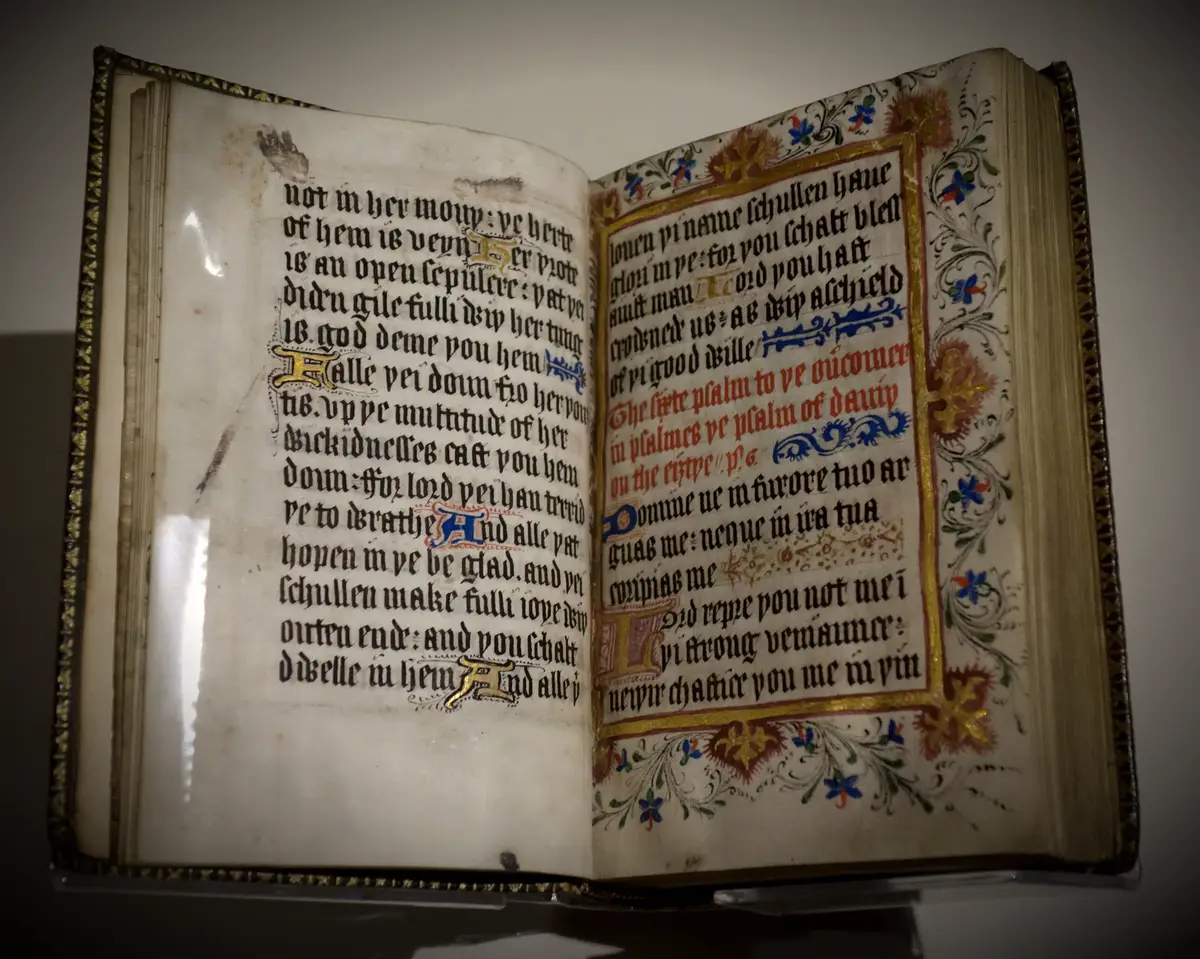 not in her mouþ : ye herte
of hem is veyn Her yrote
is an open sepulcre : yat yei
diden gile fulli wiy her tung
is. god deme you hem
Falle yei doun fro her youȝ
tis. vp ye multitude of her
wickidnesses cast you hem
doun : ffor lord yei han terrid
ye to wrathe And alle yat
hopen in ye be glad. and yei
schullen make fulli ioye wiy
outen ende : and you schalt
dwelle in hem And alle ẏ
louen yi name schullen haue
glori in ye : for you schalt bless
a iust man Lord you hast
crowned us : as wiy a schield
of yi good wille
The sixte psalm to ye ouercomer
in psalmes ye psalm of dauiy
on the eiȝtye. Ps. 6.
Domine ne in furore tuo ar
guas me : neque in ira tua
coripias me
Lord repre you not me ī
yi strong veniaunce :
neiyir chastice you me in yin